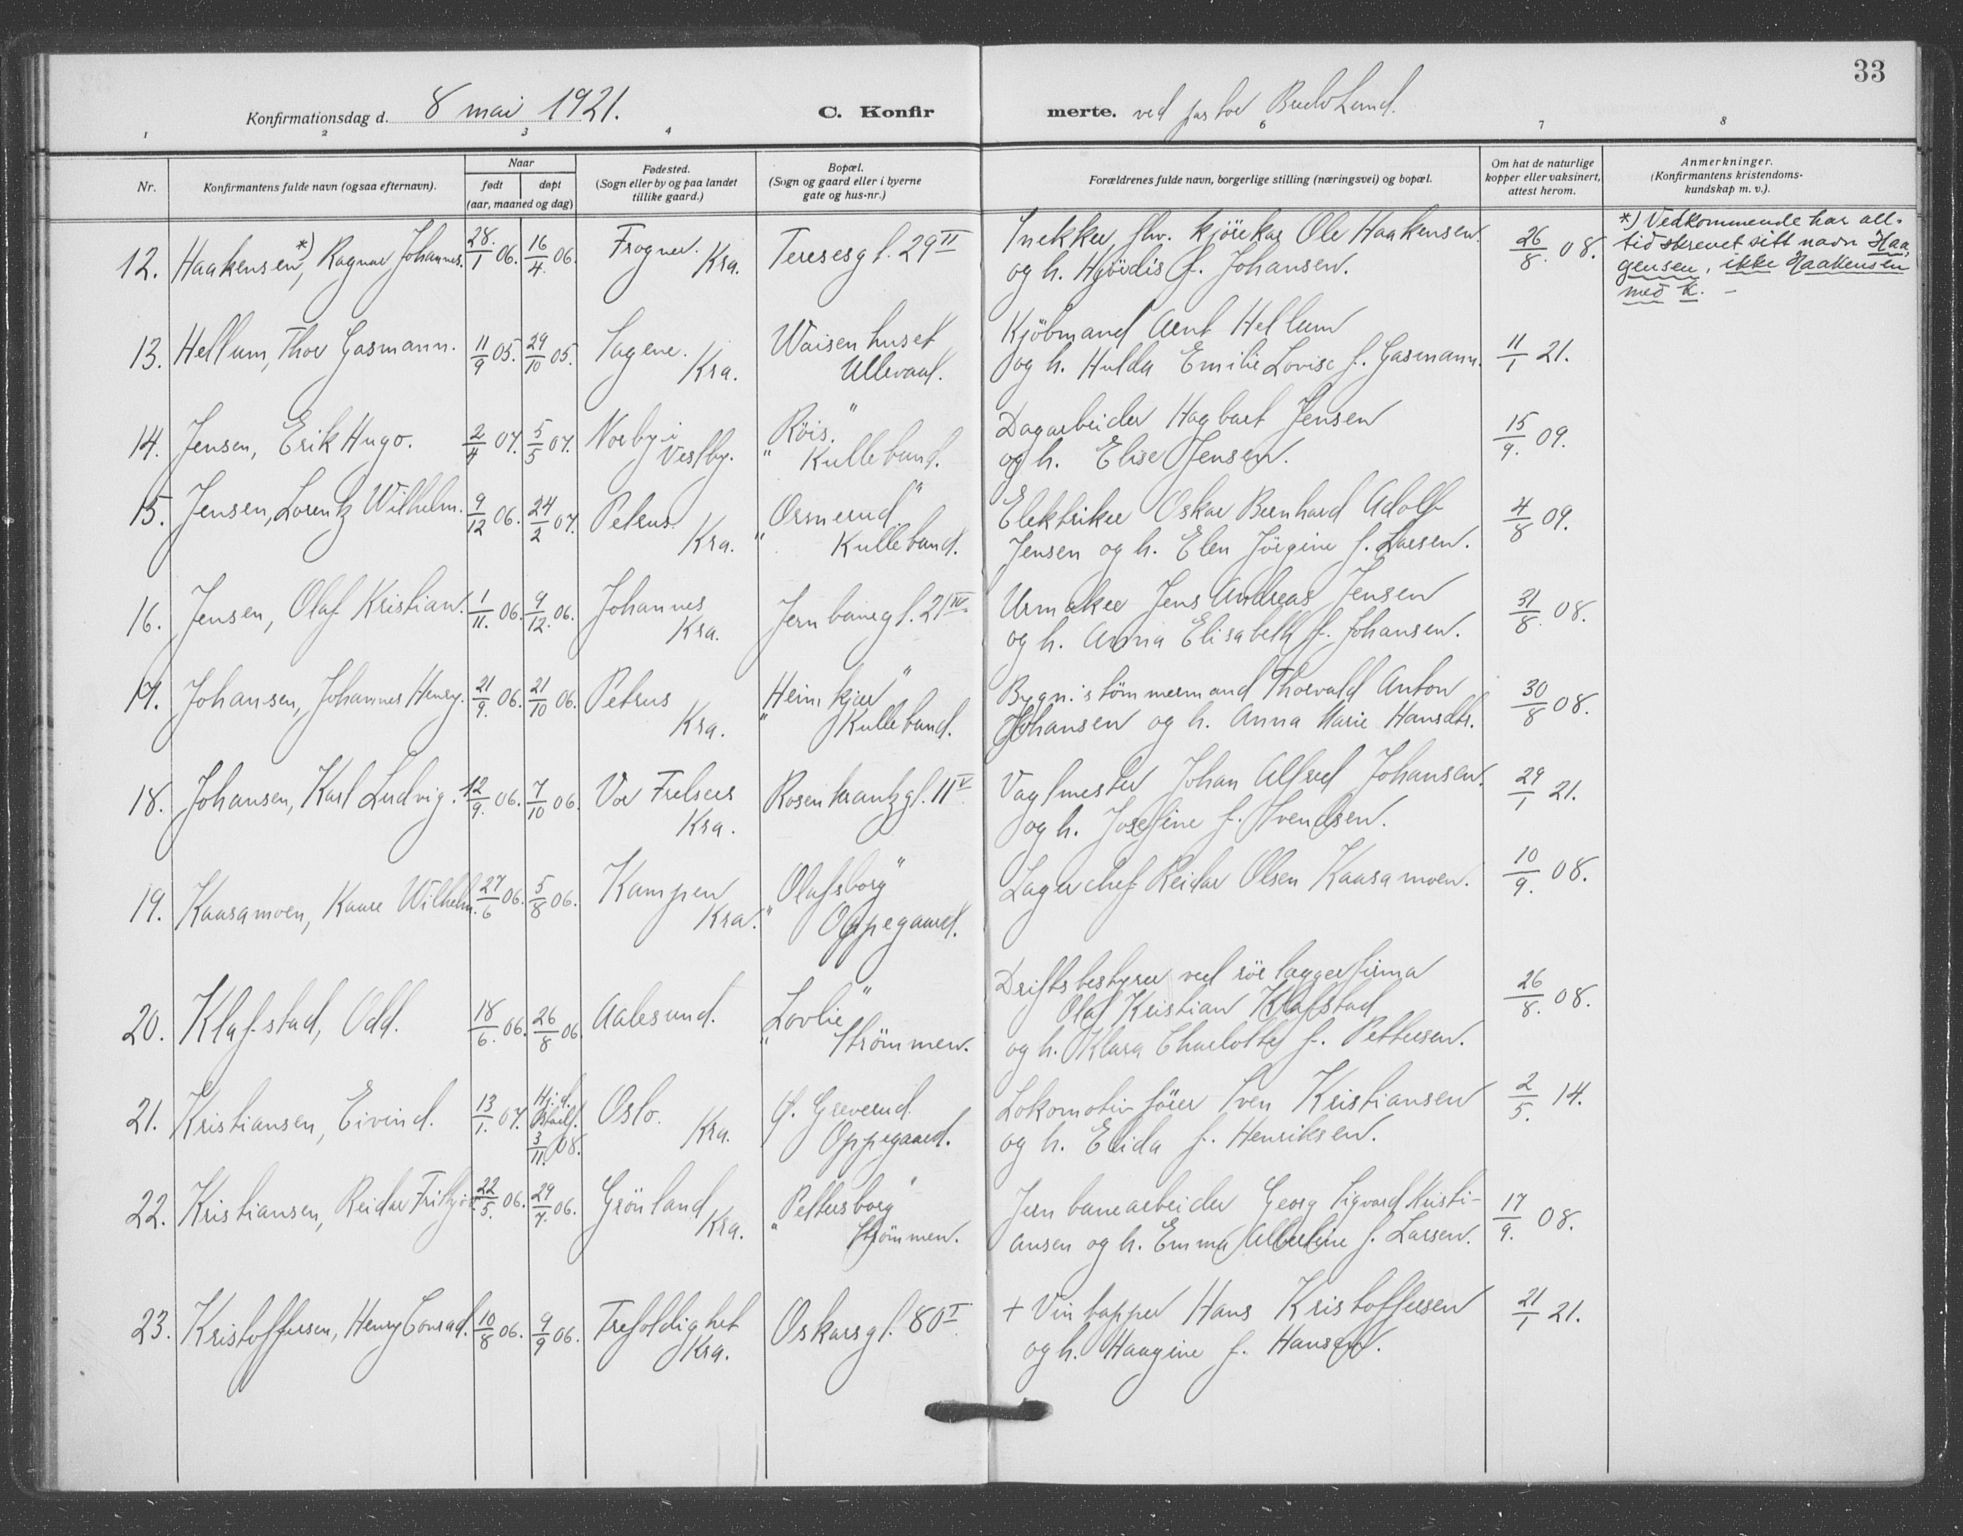 33
Konfirmationsdag d. 8 mai 1921. C. Konfir merte. ved pastor Lund.
1 2 3 4 6 7 8
Nr. Konfirmantens fulde navn (ogsaa efternavn). Naar født døpt (aar, maaned og dag) Fødested. (Sogn eller by og paa landet tillike gaard.) Bopæl. (Sogn og gaard eller i byerne gate og hus-nr.) Forældrenes fulde navn, borgerlige stilling (næringsvei) og bopæl. Om hat de naturlige kopper eller vaksinert, attest herom. Anmerkninger. (Konfirmantens kristendoms-kundskap m. v.).
12. Haakensen, *) Ragnar Johannes. 28/1 06. 16/4 06. Frogner. Kra. Teresesgt. 29 II Snekker, fhv. kjørekar Ole Haakensen. 26/8. 08.
og h. Hjördis f. Johansen.
*) Vedkommende har all-
tid skrevet sitt navn Haa-
gensen, ikke Haakensen
med k. –
13. Hellum, Thor Gasmann. 11/9 05. 29/10 05. Sagene. Kra. Waisenhuset Ullevaal. Kjöbmand Arnt Hellum 11/1 21.
og h. Hulda Emilie Lovise f. Gasmann.
14. Jensen, Erik Hugo. 2/4 07. 5/5 07. Norby i Vestby. "Röis." Kullebund. Dagarbeider Hagbart Jensen 15/9. 09.
og h. Elise Jensen.
15. Jensen, Lorentz Wilhelm. 9/12 06. 24/2 07. Petrus. Kra. "Ormerud" Kullebund. Elektriker Oskar Bernhard Adolf 4/8 09.
Jensen og h. Elen Jörgine f. Larsen.
16. Jensen, Olaf Kristian. 1/11. 06. 9/12. 06. Johannes Kra. Jernbanegt. 21 IV. Urmaker Jens Andreas Jensen 31/8. 08.
og h. Anna Elisabeth f. Johansen.
17. Johansen, Johannes Henry. 21/9. 06. 21/10 06. Petrus Kra. "Heimkjær" Kullebund. Bygn.stömmermand Thorvald Anton 30/8 08.
Johansen og h. Anna Marie Hansdtr.
18. Johansen, Karl Ludvig. 12/9. 06. 7/10 06. Vor Frelsers Kra. Rosenkrantzgt. 11 V. Vagtmester Johan Alfred Johansen. 29/1 21.
og h. Josefine f. Svendsen.
19. Kaasamoen, Kaare Wilhelm. 27/6 06. 5/8 06. Kampen Kra. "Olafsborg" Oppegaard. Lagerchef Reidar Olsen Kaasamoen. 10/9. 08.
20. Klafstad, Odd. 18/6. 06. 26/8 06. Aalesund. "Lovlie" Strömmen. Driftsbestyrer ved rörlæggerfirma 26/8. 08.
Olaf Kristian Klafstad
og h. Klara Charlotte f. Pettersen.
21. Kristiansen, Eivind. 13/1. 07. Hj.d. 3/11. 08. Oslo. Kra. Greverud. Oppegaard. Lokomotivförer Sven Kristiansen 2/5. 14.
og h. Elida f. Henriksen.
22. Kristiansen, Reidar Fritjof. 22/5. 06. 29/7. 06. Grönland Kra. "Pettersborg" Strömmen. Jernbanearbeider Georg Sigvard Kristi- 17/9. 08.
ansen og h. Emma Albertine f. Larsen.
23. Kristoffersen, Henry Conrad. 10/8 06. 9/9 06. Trefoldighet Kra. Oskarsgt. 80 I. + Vintapper Hans Kristoffersen 21/1 21.
og h. Haagine f. Hansen.